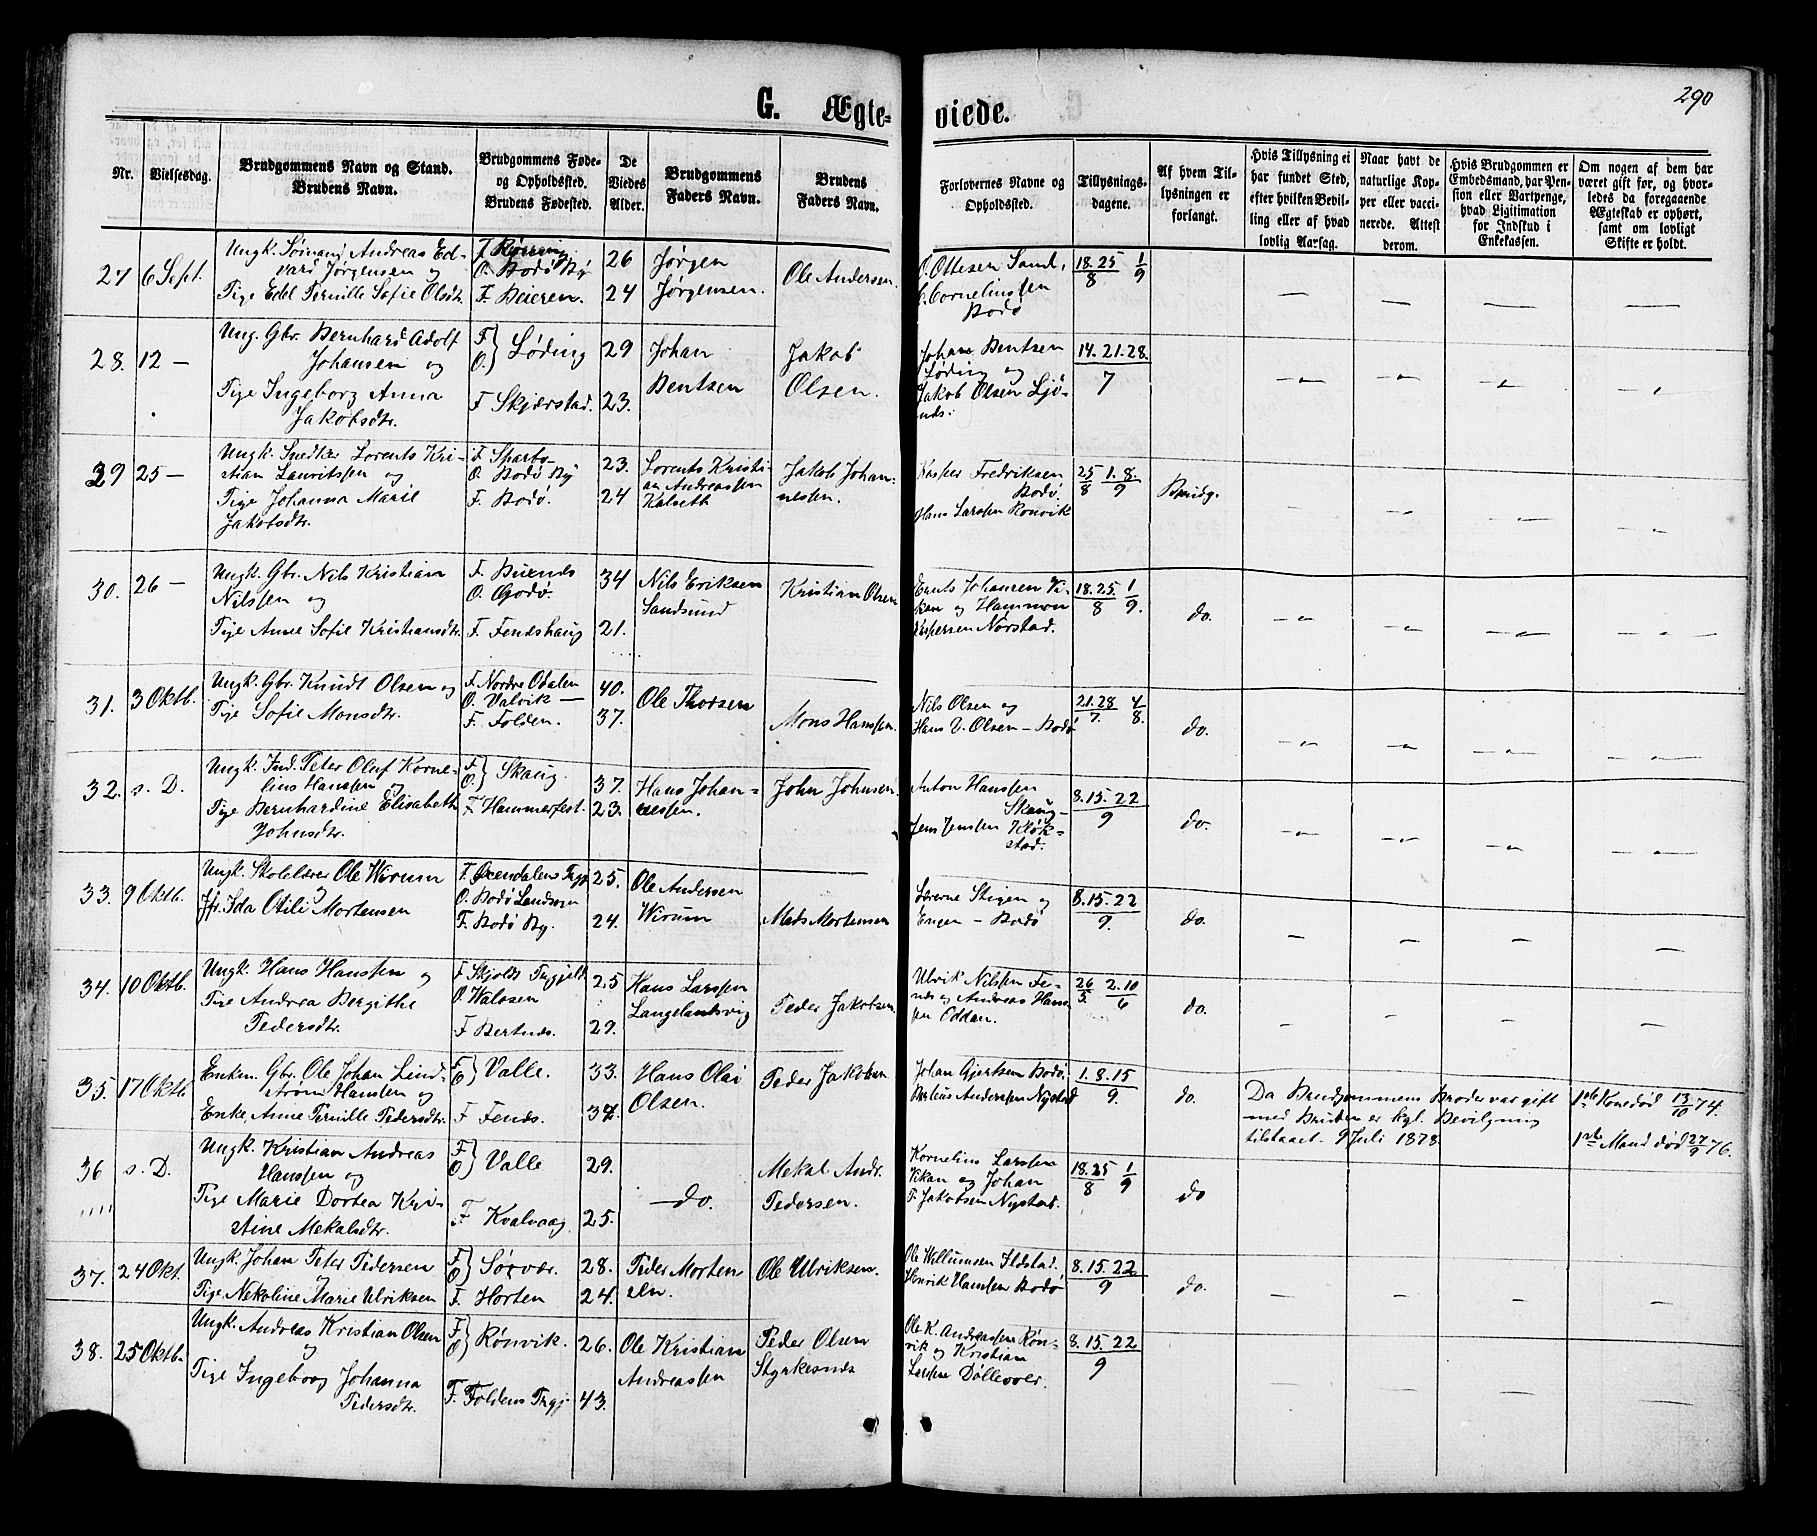 290
G. Ægte-
viede.
Nr.
Vielsesdag.
Brudgommens Navn og Stand.
Brudens Navn.
Brudgommens Føde-
og Opholdssted.
Brudens Fødested.
De
Viedes
Alder.
Brudgommens
Faders Navn.
Brudens
Faders Navn.
Forlovernes Navne og
Opholdssted.
Tillysnings-
dagene.
Af hvem Til-
lysningen er
forlangt.
Hvis Tillysning ei
har fundet Sted,
efter hvilken Bevil-
ling eller af hvad
lovlig Aarsag.
Naar havt de
naturlige Kop-
per eller vacci-
nerede. Attest
derom.
Hvis Brudgommen er
Embedsmand, har Pen-
sion eller Vartpenge,
hvad Ligitimation
for Indskud i
Enkekassen.
Om nogen af dem har
været gift før, og hvor-
ledes da foregaaende
Ægteskab er ophørt,
samt om lovligt
Skifte er holdt.
27 6 Sept.
Ungk. Sømand Andreas Ed-
vard Jørgensen og
Pige Edel Pernille Sofie Olsdtr
F.
O. Bodø By
F. Beieren.
26
24
Jørgen
Jørgensen.
Ole Andersen.
O. Ottesen Sand,
C. Corneliussen
Bodø
18. 25/8 1/9
28. 12 —
Ung. Gbr. Bernhard Adolf
Johansen og
Pige Ingeborg Anna
Jakobsdtr.
F} Løding
O.
F Skjerstad.
29
23.
Johan
Bentsen
Jakob
Olsen.
Johan Bentsen
Løding og
Jakob Olsen Ljø-
nes.
14. 21. 28./7
29 25 —
Ungk. Snedker Lorents Kri-
stian Lauritssen og
Pige Johanna Marie
Jakobsdtr.
F. Sparbo
O. Bodø By
F. Bodø.
23.
24
Lorents Kristi-
an Andreassen
Kalseth
Jakob Johan-
nessen.
Kasper Fredriksen
Bodø.
Hans Larssen Ronvik
25/8 1. 8./9
Brudg.
30. 26 —
Ungk. Gbr. Nils Kristian
Nilssen og
Pige Anne Sofie Kristiansdtr.
F.
O. Godø.
F. Fendshaug
34
21.
Nils Eriksen
Sandsund
Kristian Olsen
Johansen Vi-
ken og Hammon
Kaspersen Nørstad.
18. 25/8 1/9.
do.
31. 3 Oktb.
Ungk. Gbr. Knudt Olsen og
Pige Sofie Monsdtr.
F. Nordre Odalen
O. Valvik —
F. Folden.
40.
37.
Ole Thorsen
Mons Hanssen.
Nils Olsen og
Hans V. Olsen — Bodø
21. 28/7. 4/8.
do.
32. s. D.
Ungk. Ind. Peter Oluf Korne-
lius Hanssen og
Pige Bernhardine Elisabeth
Johnsdtr.
F} Skaug.
O.
F. Hammerfest.
37.
23.
Hans Johan-
nessen.
John Johnsen.
Anton Hanssen
Skaug —
Jens Jenssen Kløk-
stad.
8. 15. 22/9
do.
33. 9 Oktb.
Ungk. Skolelærer Ole Wirum
og
Jfr. Ida Otilie Mortensen
F. Ørendalens Prgj
O. Bodø Landsogn
F. Bodø By.
25.
24.
Ole Andersen
Wirum
Mads Mortensen
Lærerne Stigen og
Engen — Bodø
8. 15. 22/9.
do.
34. 10 Oktb.
Ungk. Hans Hanssen og
Pige Andrea Bergithe
Pedersdtr.
F. Skjolds Prgjeld
O. Walosen
F. Bertnes.
25
29.
Hans Larssen
Langelandsvig
Peder Jakobsen
Ulrik Nilssen Fe-
nes og Andreas Hans-
sen Oddan.
26/5. 2. 10/6
do.
35. 17 Oktb
Enkm. Gbr. Ole Johan Lind-
strøm Hanssen og
Enke, Anne Pernille Pedersdtr.
F} Valle.
O
F Fenes.
33.
34.
Hans Olai
Olsen.
Peder Jakobsen
Johan Gjertsen Bodø.
Andersen Nystad
1. 8. 15/9.
do.
Da Brudgommens Broder var gift
med Bruden er kgl. Bevilgning
tilstaaet 9 Juli 1878.
1ste Kone død 13/10 74.
1ste Mand død 27/9 76.
36 s. D.
Ungk. Kristian Andreas
Hanssen og
Pige Marie Dortea Kri-
stine Mekalsdtr.
F} Valle
O
F. Kvalvaag.
29.
25.
— do.
Mekal Andr.
Pedersen.
Kornelius Larssen
Vikan og Johan
P. Jakobsen Nystad.
18. 25/8 1/9
do
37. 24 Okt.
Ungk. Johan Peter Pedersen
og
Pige Nekoline Marie Ulriksen
F} Sørvær.
O
F. Horten
28.
24.
Peder Morten
sen.
Ole Ulriksen.
Ole Willumsen Ildstad.
Henrik Hanssen Bodø
8. 15. 22/9
do.
38. 25 Oktb.
Ungk. Andreas Kristian Olsen
og
Pige Ingeborg Johanna
Pedersdtr.
F} Rønvik.
O
F. Foldens Prgj.
26.
43.
Ole Kristian
Andreassen
Peder Olsen
Styrkesnes
Ole K. Andreassen Røn-
vik og Kristian
Larssen
8. 15. 22/9